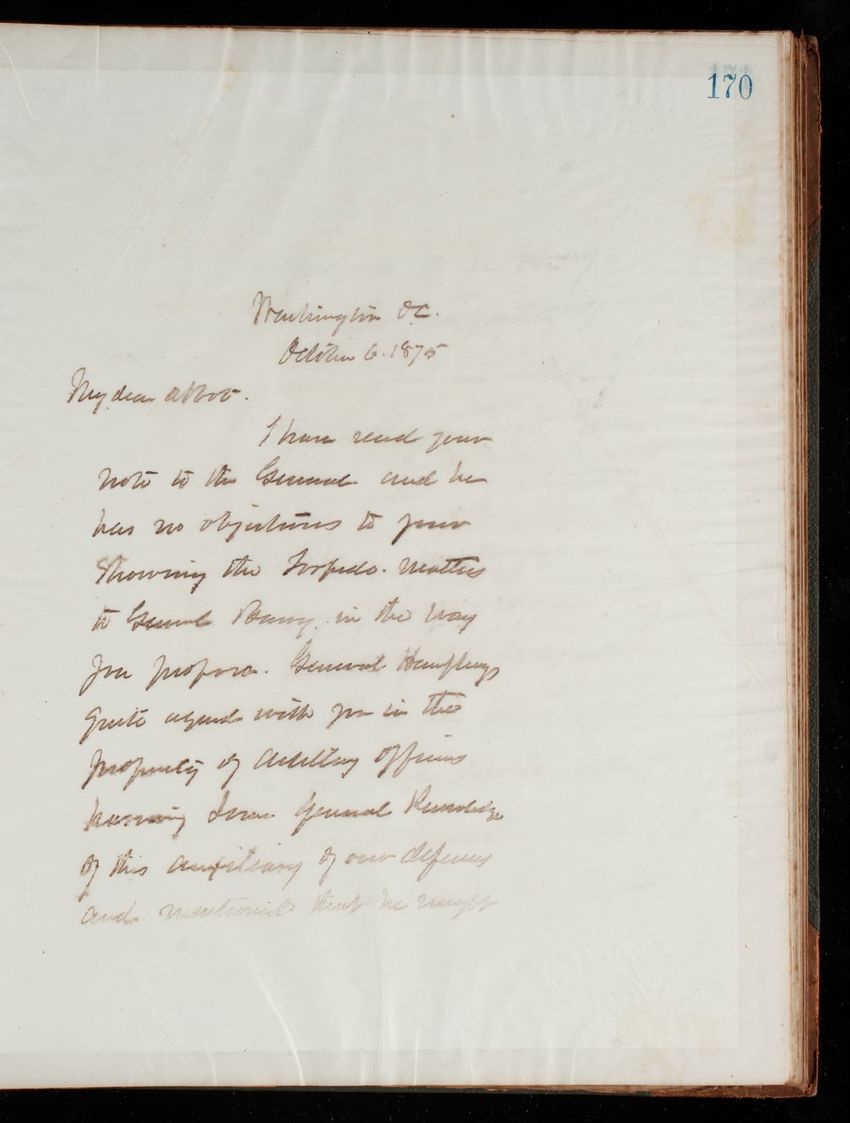 170
Washington D.C.
October 6. 1875
My dear Abbot.
I have read your
note to the General and he
has no objections to your
showing the Torpedo. matters
to General Barry. in the way
you propose. General Humphreys
quite agrees with you in the
propriety of Artillery officers
having some general knowledge
of this auxiliary of our defenses
and mentioned that he might